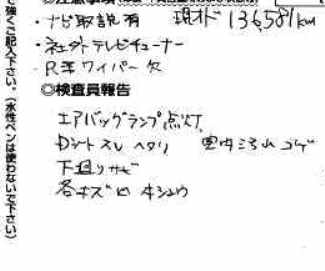 ・ナビ取説有 現オド 136,581km
・社外テレビチューナー
・Rキワイパー欠
◎検査員報告
エアバッグランプ点灯
Dシートスレ ヘタリ 室内 シミ コゲ
下廻りサビ
各キズ 凹 キシュウ
強くご記入下さい。(水性ペンは使わないで下さい)